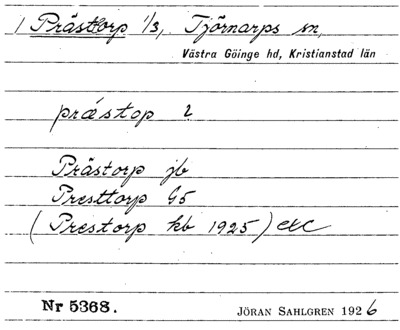 1 Prästtorp 1/3, Tjörnarps sn,
Västra Göinge hd, Kristianstad län
præstop 2
Prästorp jb
Presttorp G5
(Prestorp kb 1925) etc
Nr 5368. JÖRAN SAHLGREN 1926